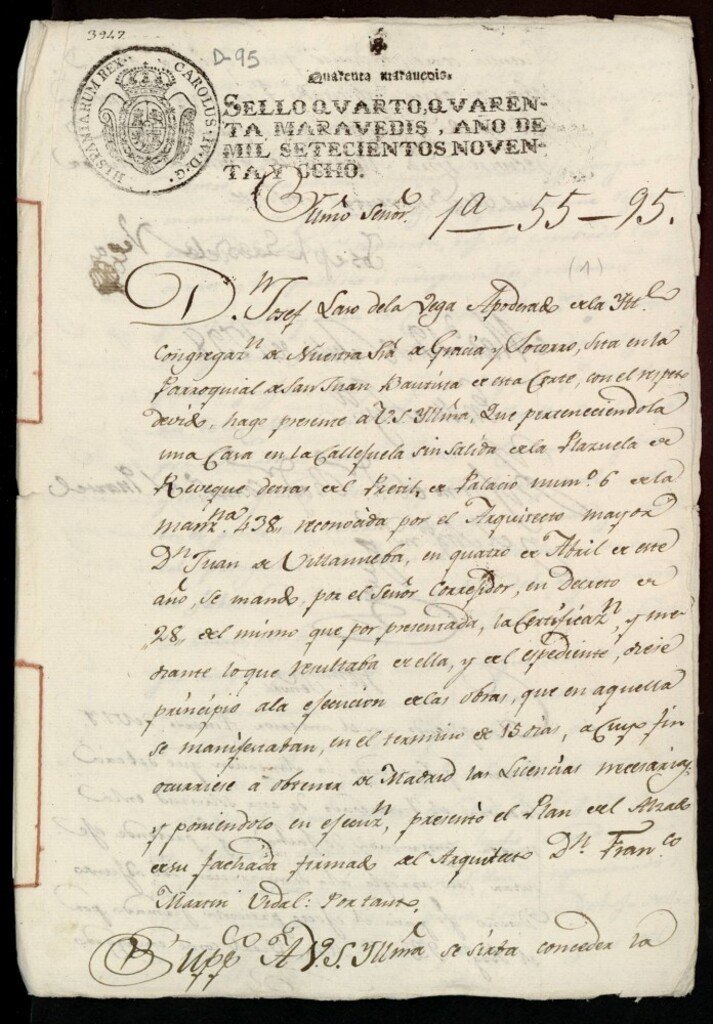 3947
D-95
HISPANIARUM REX. CAROLUS. IV. D. G.
Quarenta maravedis.
SELLO QVARTO, QVAREN-
TA MARAVEDIS, AÑO DE
MIL SETECIENTOS NOVEN-
TA Y OCHO.
Yllmo Señor. 1a—55—95.
(1)
Dn. Josef Laso de la Vega Apoderado de la Ytt.e
Congregazn. de Nuestra Sra de Gracia y Socorro, sita en la
Parroquial de San Juan Bautista de esta Corte, con el respeto
devido, hago presente á V.S. Yllma, Que perteneciendola
una Casa en la Callejuela sin salida de la Plazuela de
Reveque detras del Pretil de Palacio num.o 6 de la
manz.na 438, reconocida por el Arquitecto mayor
Dn. Juan de Villanueba, en quatro de Abril de este
año, se mando por el Señor Corregidor, en Decreto de
28, del mismo que por presentada, la Certificazn, y me-
diante lo que resultaba de ella, y del espediente, diese
principio a la ejecucion de las obras, que en aquella
se manifestaban, en el termino de 15 dias, a cuyo fin
ocurriese á obtener de Madrid las Licencias necesarias,
y poniendolo en ejecuzn, presentó el Plan del Alzado
de su fachada firmado del Arquitecto Dn. Franco
Martin Vidal: Portanto,
Suppco A V.S. Yllma se sirba conceder la